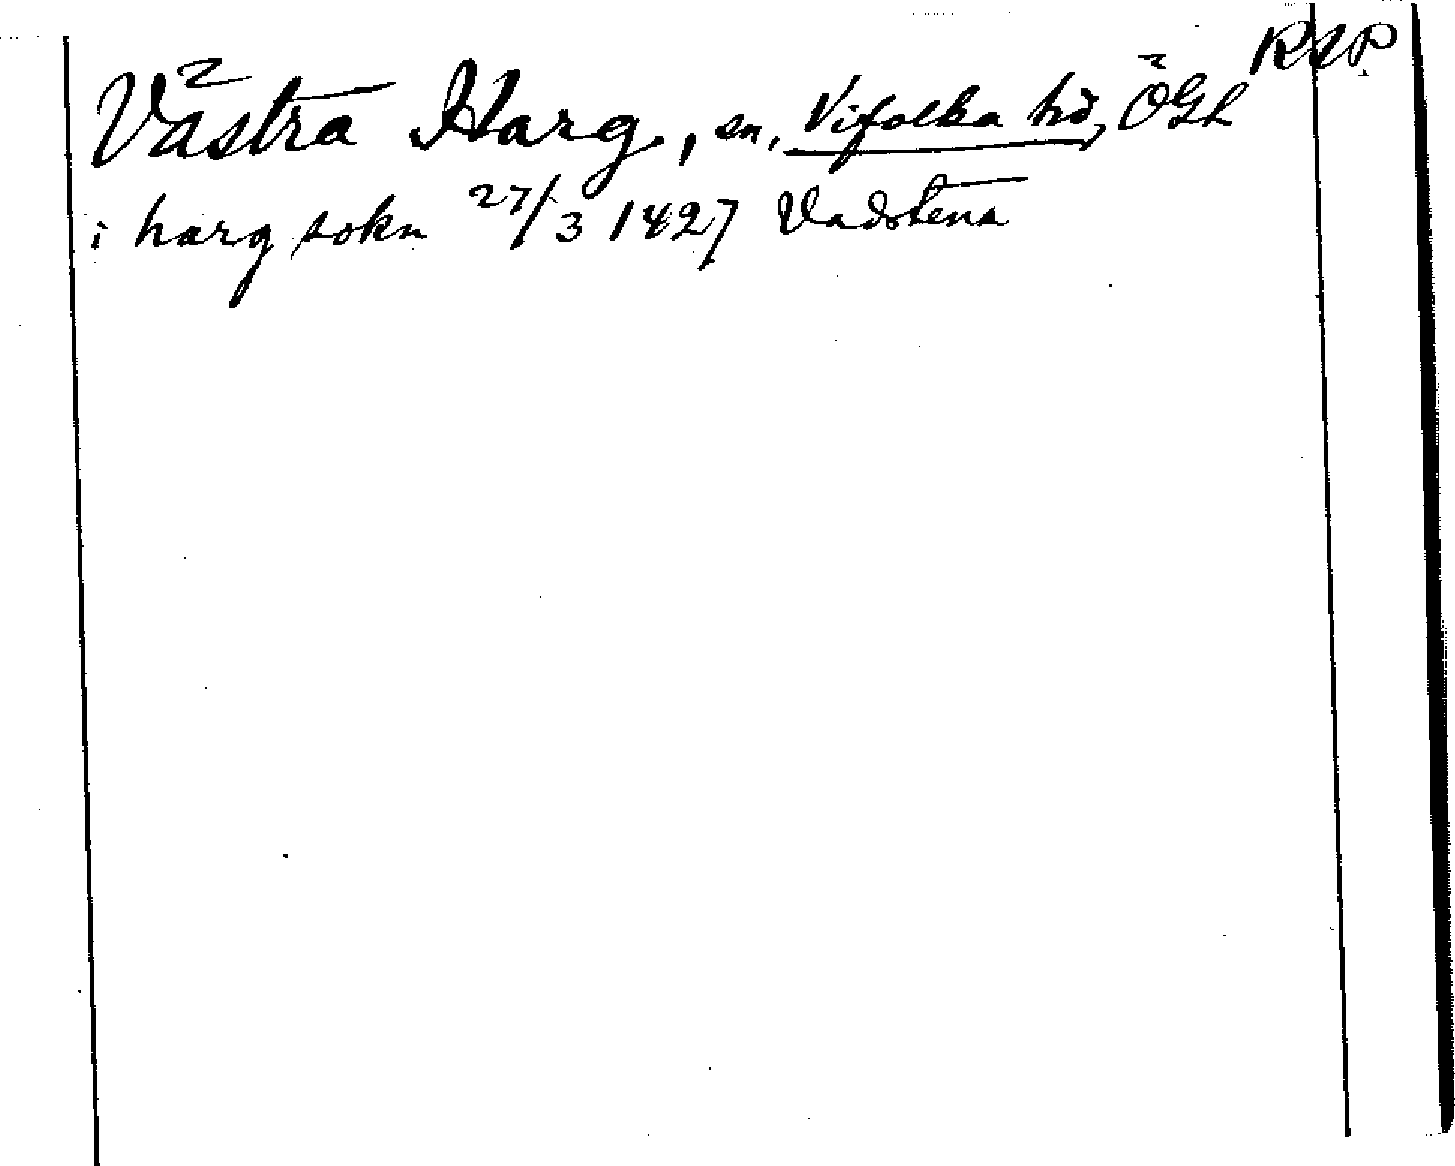 RAP
Västra Harg, sn, Vifolka hd, ÖGL
i harg sokn 27/3 1427 Vadstena